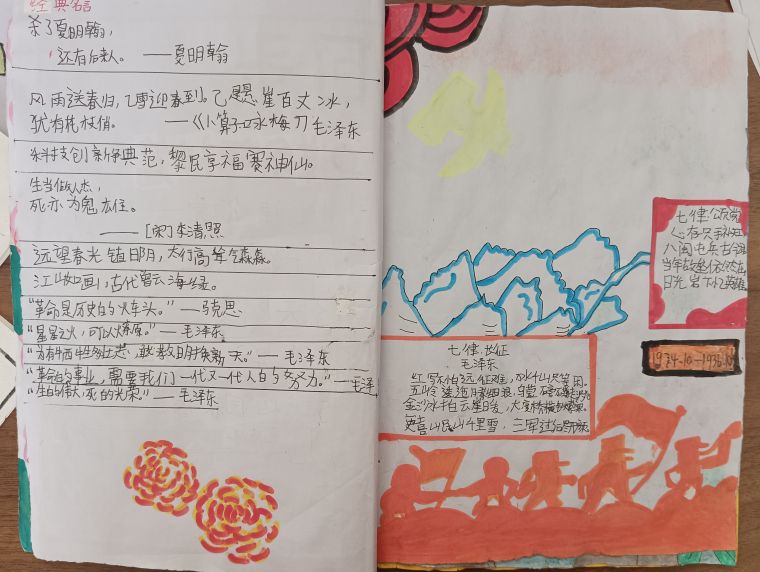 经典名言
杀了夏明翰，
还有后来人。 ——夏明翰
风雨送春归，飞雪迎春到。已是悬崖百丈冰，
犹有花枝俏。 ——《卜算子·咏梅》毛泽东
科技创新净典范，黎民享福赛神仙。
生当做人杰，
死亦为鬼雄。
——[宋]李清照
远望春光镇日阴，太行高耸气森森。
江山如画，古代
"革命是历史的火车头。"——马克思
"星星之火，可以燎原。"—毛泽东
"为有牺牲多壮志，敢教日月换新天。"—毛泽东
"革命的事业，需要我们一代又一代人的努力。"—毛泽
"生的伟大，死的光荣。"—毛泽东
七律 颂党
八闽屯兵古今
日光岩下忆英雄
1934·10-1936·10
七律 长征
毛泽东
红军不怕远征难，万水千山只等闲。
五岭逶迤腾细浪，乌蒙磅礴走泥丸
金沙水拍云崖暖，大渡桥横铁索寒。
更喜岷山千里雪，三军过后尽开颜。